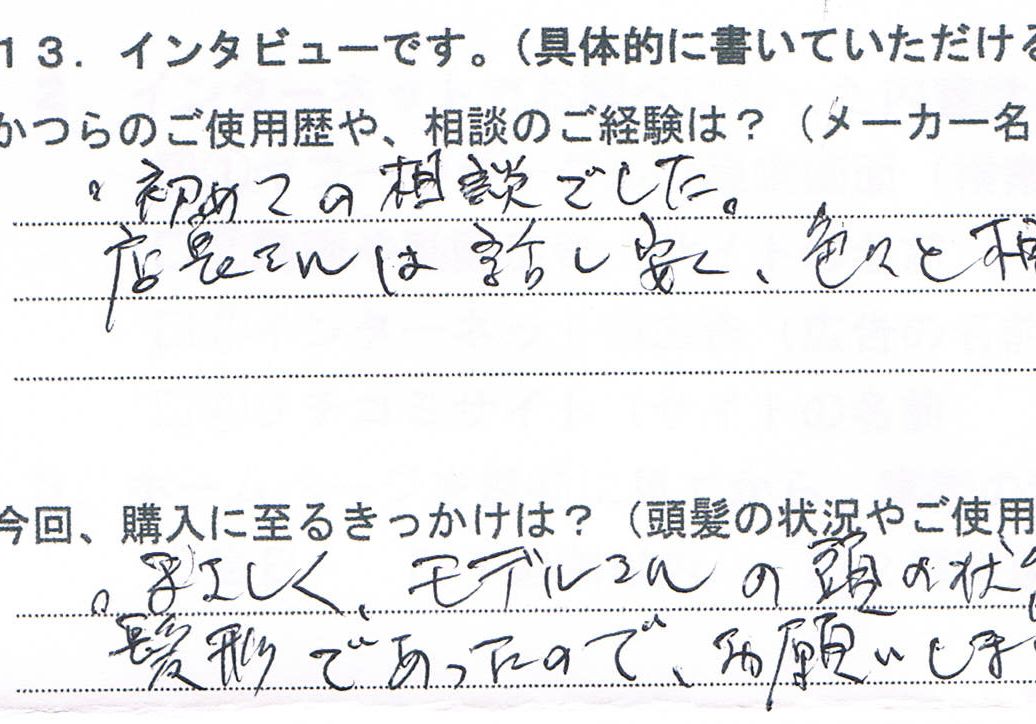 13．インタビューです。（具体的に書いていただける
かつらのご使用歴や、相談のご経験は？（メーカー名
・初めての相談でした。
店長さんは話し安く、色々と相
今回、購入に至るきっかけは？（頭髪の状況やご使用
・まさしく、モデルさんの頭の状
髪形であったので、お願いしま